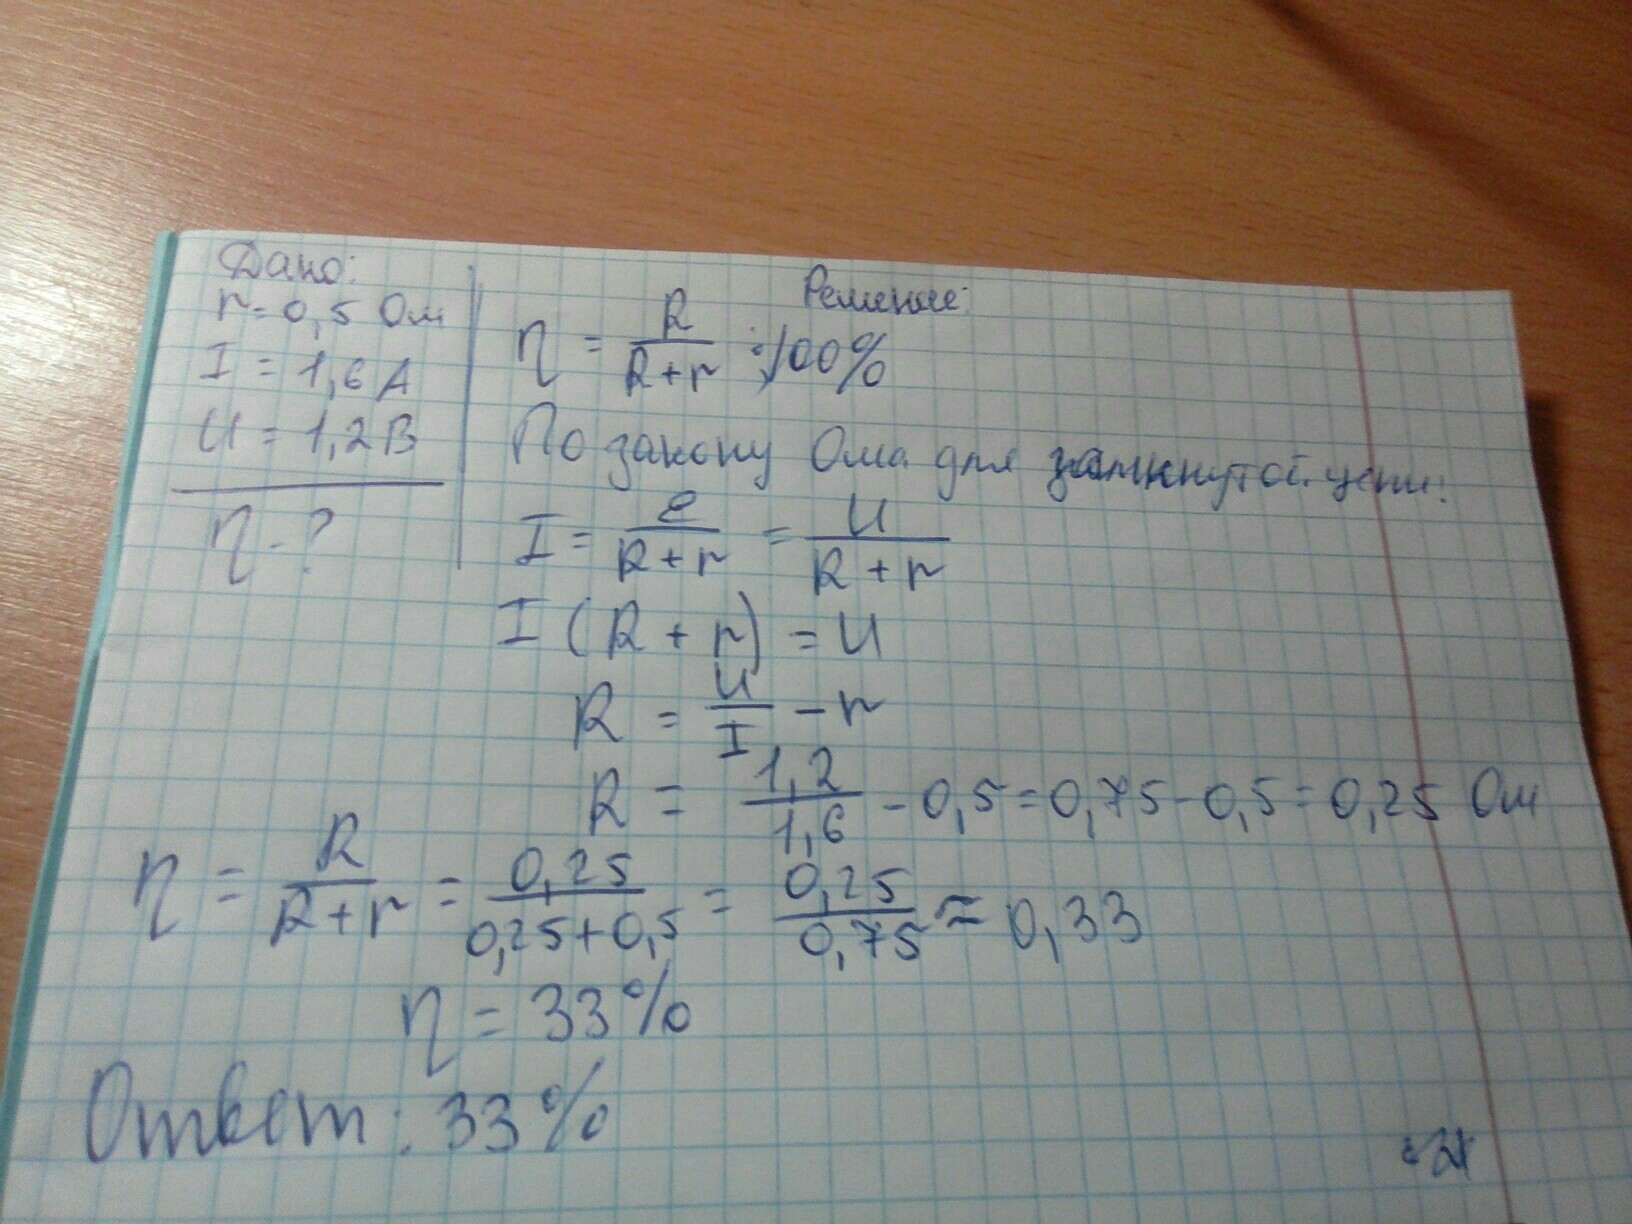 Дано:
r = 0,5 Ом
I = 1,6 А
U = 1,2 В
η - ?
Решение:
η = R/(R+r) · 100%
По закону Ома для замкнутой цепи:
I = e/(R+r) = U/(R+r)
I (R + r) = U
R = U/I - r
R = 1,2/1,6 - 0,5 = 0,75 - 0,5 = 0,25 Ом
η = R/(R+r) = 0,25/(0,25+0,5) = 0,25/0,75 ≈ 0,33
η = 33%
Ответ: 33%